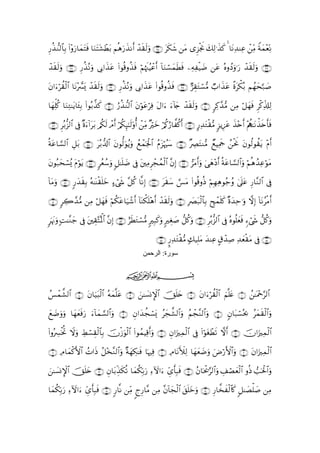 نِّعْمَةً مِّنْ عِندِنَا كَذَٰلِكَ نَجْزِي مَن شَكَرَ ۝ وَلَقَدْ أَنذَرَهُم بَطْشَتَنَا فَتَمَارَوْا بِالنُّذُرِ
۝ وَلَقَدْ رَاوَدُوهُ عَن ضَيْفِهِ فَطَمَسْنَا أَعْيُنَهُمْ فَذُوقُوا عَذَابِي وَنُذُرِ ۝ وَلَقَدْ
صَبَّحَهُم بُكْرَةً عَذَابٌ مُّسْتَقِرٌّ ۝ فَذُوقُوا عَذَابِي وَنُذُرِ ۝ وَلَقَدْ يَسَّرْنَا الْقُرْآنَ
لِلذِّكْرِ فَهَلْ مِن مُّدَّكِرٍ ۝ وَلَقَدْ جَاءَ آلَ فِرْعَوْنَ النُّذُرُ ۝ كَذَّبُوا بِآيَاتِنَا كُلِّهَا
فَأَخَذْنَاهُمْ أَخْذَ عَزِيزٍ مُّقْتَدِرٍ ۝ أَكُفَّارُكُمْ خَيْرٌ مِّنْ أُولَٰئِكُمْ أَمْ لَكُم بَرَاءَةٌ فِي الزُّبُرِ ۝
أَمْ يَقُولُونَ نَحْنُ جَمِيعٌ مُّنتَصِرٌ ۝ سَيُهْزَمُ الْجَمْعُ وَيُوَلُّونَ الدُّبُرَ ۝ بَلِ السَّاعَةُ
مَوْعِدُهُمْ وَالسَّاعَةُ أَدْهَىٰ وَأَمَرُّ ۝ إِنَّ الْمُجْرِمِينَ فِي ضَلَالٍ وَسُعُرٍ ۝ يَوْمَ يُسْحَبُونَ
فِي النَّارِ عَلَىٰ وُجُوهِهِمْ ذُوقُوا مَسَّ سَقَرَ ۝ إِنَّا كُلَّ شَيْءٍ خَلَقْنَاهُ بِقَدَرٍ ۝ وَمَا
أَمْرُنَا إِلَّا وَاحِدَةٌ كَلَمْحٍ بِالْبَصَرِ ۝ وَلَقَدْ أَهْلَكْنَا أَشْيَاعَكُمْ فَهَلْ مِن مُّدَّكِرٍ ۝
وَكُلُّ شَيْءٍ فَعَلُوهُ فِي الزُّبُرِ ۝ وَكُلُّ صَغِيرٍ وَكَبِيرٍ مُّسْتَطَرٌ ۝ إِنَّ الْمُتَّقِينَ فِي جَنَّاتٍ وَنَهَرٍ
۝ فِي مَقْعَدِ صِدْقٍ عِندَ مَلِيكٍ مُّقْتَدِرٍ ۝
سورة: الرحمن
بِسْمِ اللَّهِ الرَّحْمَٰنِ الرَّحِيمِ
الرَّحْمَٰنُ ۝ عَلَّمَ الْقُرْآنَ ۝ خَلَقَ الْإِنسَانَ ۝ عَلَّمَهُ الْبَيَانَ ۝ الشَّمْسُ
وَالْقَمَرُ بِحُسْبَانٍ ۝ وَالنَّجْمُ وَالشَّجَرُ يَسْجُدَانِ ۝ وَالسَّمَاءَ رَفَعَهَا وَوَضَعَ
الْمِيزَانَ ۝ أَلَّا تَطْغَوْا فِي الْمِيزَانِ ۝ وَأَقِيمُوا الْوَزْنَ بِالْقِسْطِ وَلَا تُخْسِرُوا
الْمِيزَانَ ۝ وَالْأَرْضَ وَضَعَهَا لِلْأَنَامِ ۝ فِيهَا فَاكِهَةٌ وَالنَّخْلُ ذَاتُ الْأَكْمَامِ ۝
وَالْحَبُّ ذُو الْعَصْفِ وَالرَّيْحَانُ ۝ فَبِأَيِّ آلَاءِ رَبِّكُمَا تُكَذِّبَانِ ۝ خَلَقَ الْإِنسَانَ
مِن صَلْصَالٍ كَالْفَخَّارِ ۝ وَخَلَقَ الْجَانَّ مِن مَّارِجٍ مِّن نَّارٍ ۝ فَبِأَيِّ آلَاءِ رَبِّكُمَا